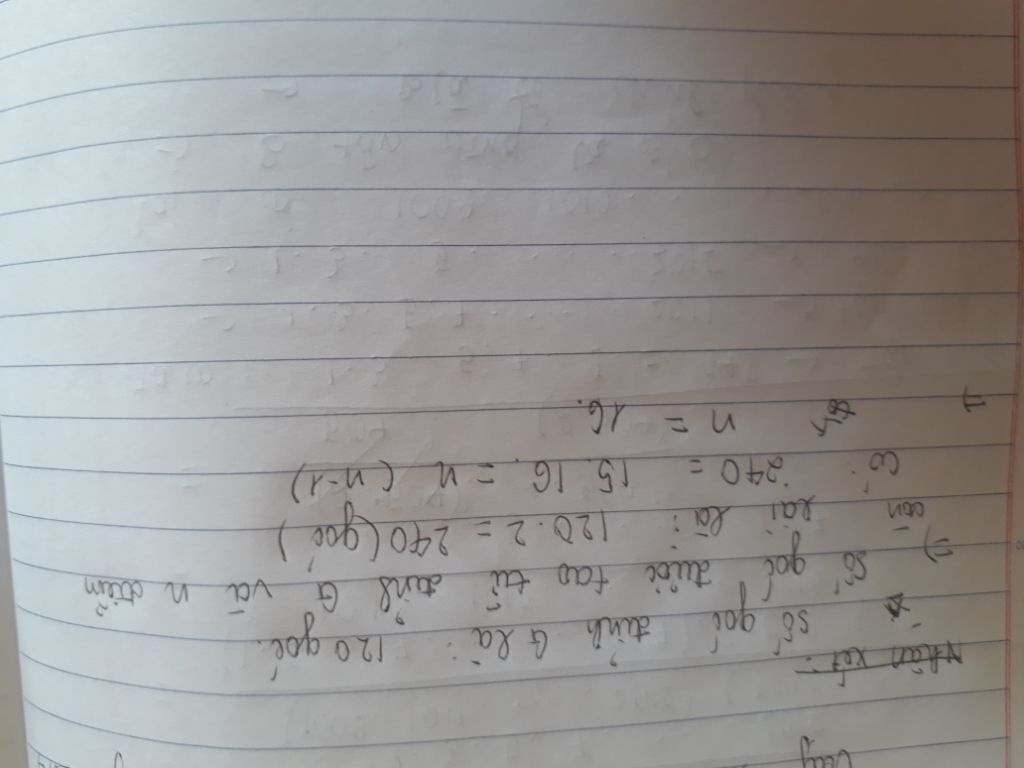 Vậy
Nhận xét:
Số góc đỉnh G là: 120 góc.
=) Số góc được tạo từ đỉnh G và n điểm
còn lại là: 120.2 = 240 (góc)
Có: 240 = 15.16. = n (n-1)
n = 16.